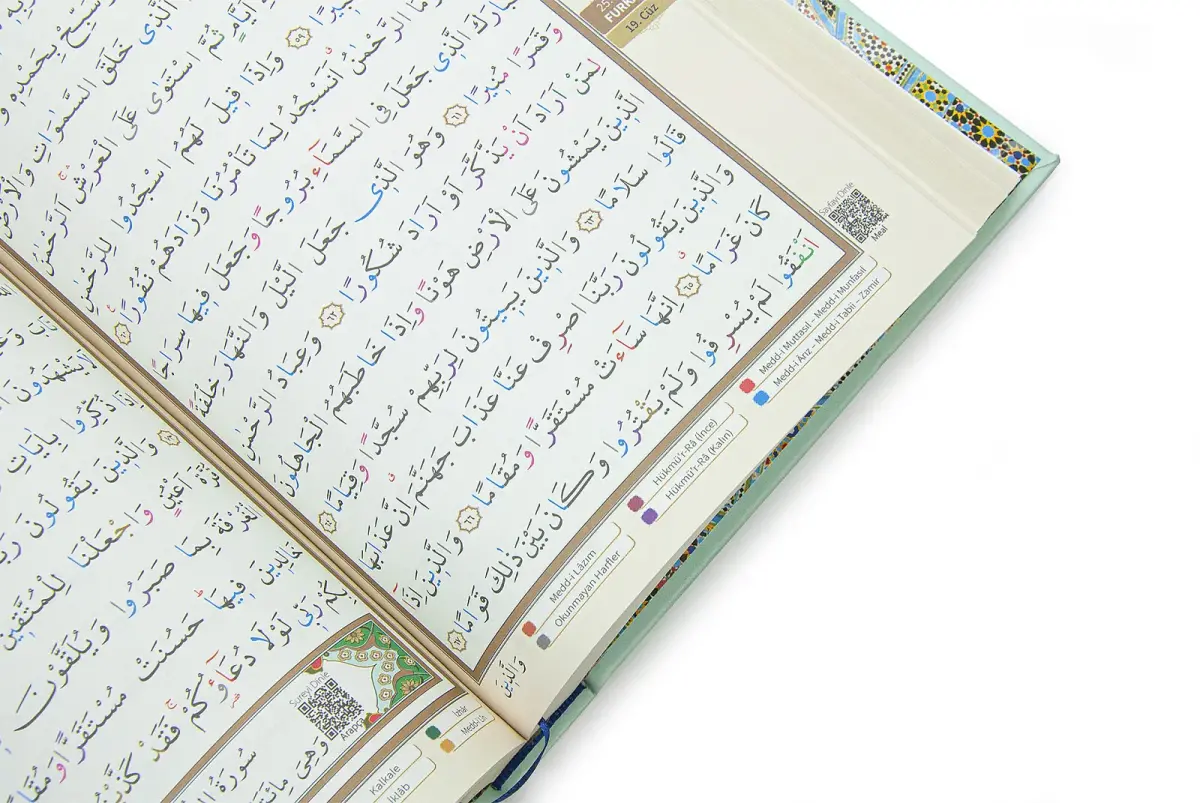 FURK
19. Cüz
الَّذِى خَلَقَ السَّمٰوَاتِ وَالْاَرْضَ
اَيَّامٍ ثُمَّ اسْتَوٰى عَلَى الْعَرْشِ اَلرَّحْمٰنُ
﴿٥٩﴾ وَاِذَا قِيلَ لَهُمُ اسْجُدُوا لِلرَّحْمٰنِ
الرَّحْمٰنُ اَنَسْجُدُ لِمَا تَأْمُرُنَا وَزَادَهُمْ نُفُورًا ﴿٦٠﴾
الَّذِى جَعَلَ فِى السَّمَاءِ بُرُوجًا وَجَعَلَ فِيهَا سِرَاجًا
وَقَمَرًا مُنِيرًا ﴿٦١﴾ وَهُوَ الَّذِى جَعَلَ الَّيْلَ وَالنَّهَارَ خِلْفَةً
لِمَنْ اَرَادَ اَنْ يَذَّكَّرَ اَوْ اَرَادَ شُكُورًا ﴿٦٢﴾ وَعِبَادُ الرَّحْمٰنِ
الَّذِينَ يَمْشُونَ عَلَى الْاَرْضِ هَوْنًا وَاِذَا خَاطَبَهُمُ الْجَاهِلُونَ
قَالُوا سَلَامًا ﴿٦٣﴾ وَالَّذِينَ يَبِيتُونَ لِرَبِّهِمْ سُجَّدًا وَقِيَامًا ﴿٦٤﴾
وَالَّذِينَ يَقُولُونَ رَبَّنَا اصْرِفْ عَنَّا عَذَابَ جَهَنَّمَ اِنَّ عَذَابَهَا
كَانَ غَرَامًا ﴿٦٥﴾ اِنَّهَا سَاءَتْ مُسْتَقَرًّا وَمُقَامًا ﴿٦٦﴾ وَالَّذِينَ اِذَا
اَنْفَقُوا لَمْ يُسْرِفُوا وَلَمْ يَقْتُرُوا وَكَانَ بَيْنَ ذٰلِكَ قَوَامًا ﴿٦٧﴾
وَالَّذِينَ
Sayfayı Dinle
Meal
Medd-i Muttasıl – Medd-i Munfasıl
Medd-i Ârız – Medd-i Tabii – Zamir
Hükmü'r-Râ (İnce)
Hükmü'r-Râ (Kalın)
Medd-i Lâzım
Okunmayan Harfler
ذُكِّرُوا بِاٰيَاتِ
وَالَّذِينَ يَقُولُونَ
اَعْيُنٍ وَاجْعَلْنَا لِلْمُتَّقِينَ
الْغُرْفَةَ بِمَا صَبَرُوا وَيُلَقَّوْنَ
خَالِدِينَ فِيهَا حَسُنَتْ مُسْتَقَرًّا وَمُقَامًا
رَبِّى لَوْلَا دُعَاؤُكُمْ فَقَدْ كَذَّبْتُمْ
Sureyi Dinle
Arapça
سُورَةُ
وَهِىَ
İzhâr
Medd-i Lîn
Kalkale
İklâb